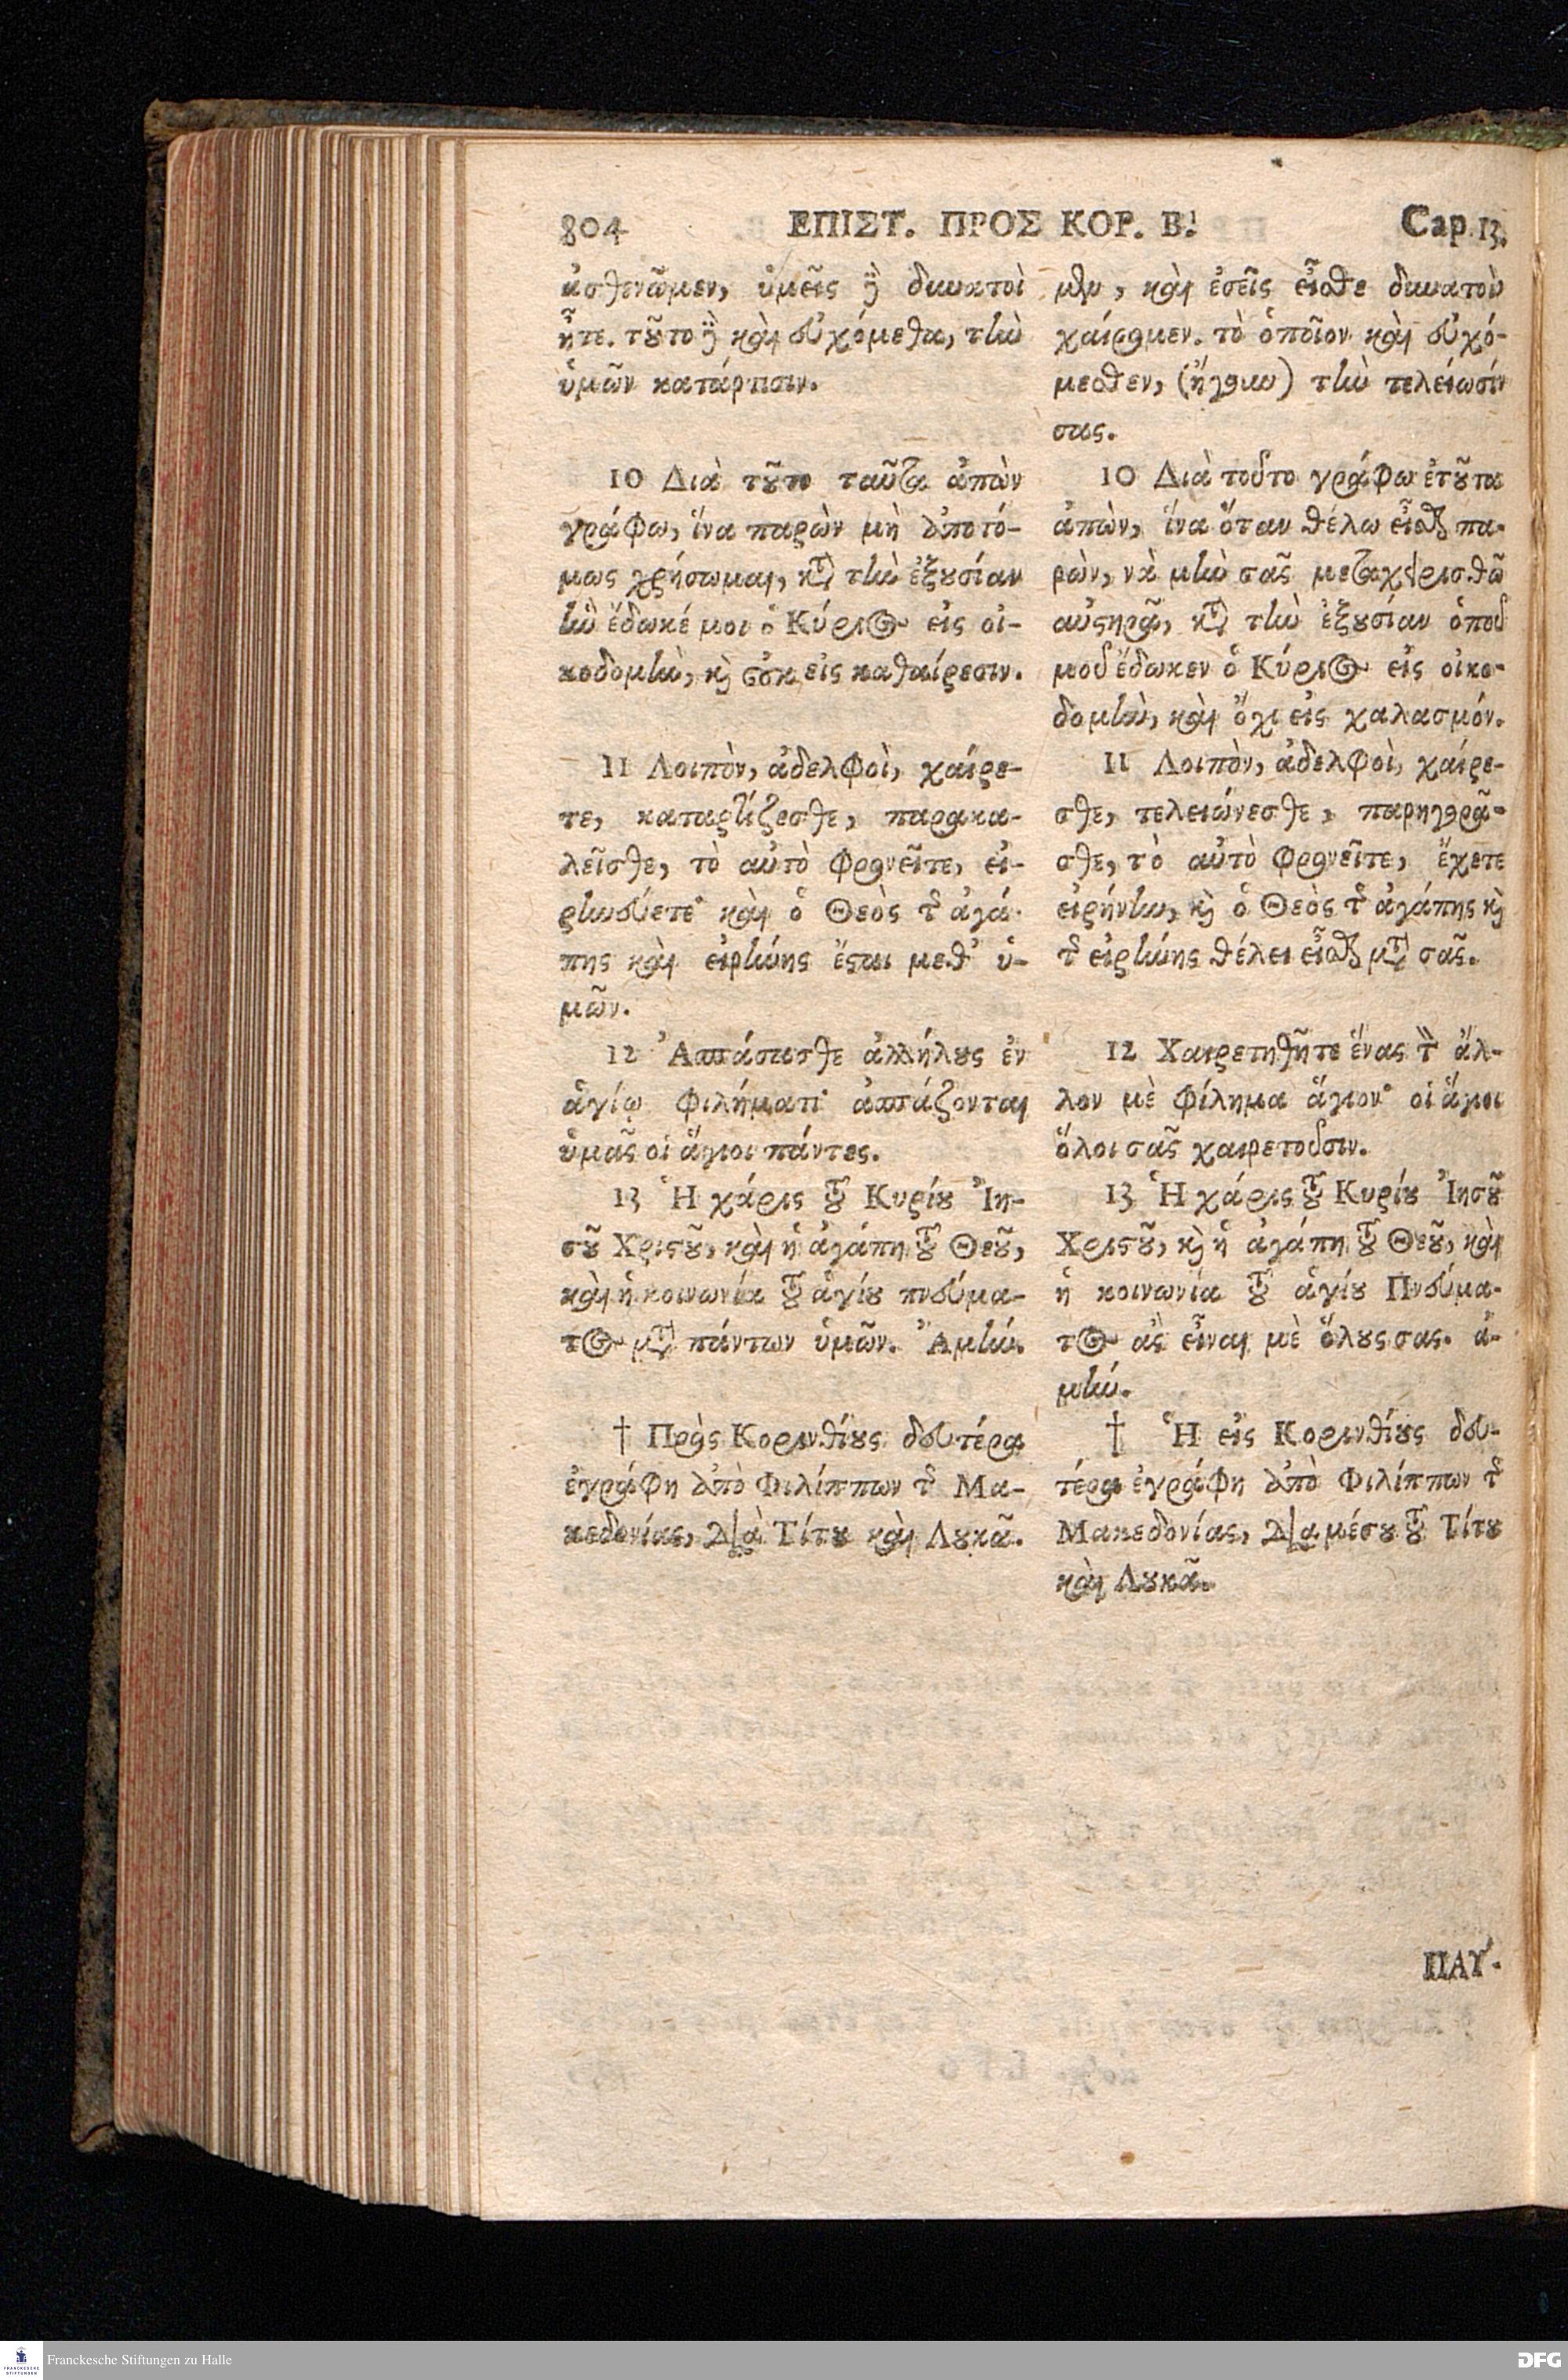 804 ΕΠΙΣΤ. ΠΡΟΣ ΚΟΡ. Β. Cap. 13.
ἀσθενῶμεν, ὑμεῖς ϳ δυνατοὶ
ἦτε. τȣ͂το ϳ καὶ εὐχόμεθα, τὴν
ὑμῶν κατάρτισιν.
10 Διὰ τȣ͂το ταῦτα ἀπὼν
γράφω, ἵνα παρὼν μὴ ἀποτό-
μως χρήσωμαι, κτ̃ τὴν ἐξȣσίαν
ἣν ἔδωκέ μοι ὁ Κύριος εἰς οἰ-
κοδομὴν, κὶ οὐκ εἰς καθαίρεσιν.
11 Λοιπὸν, ἀδελφοὶ, χαίρε-
τε, καταρτίζεσθε, παρακα-
λεῖσθε, τὸ αὐτὸ φρονεῖτε, εἰ-
ρηνεύετε· καὶ ὁ Θεὸς τ̃ ἀγά-
πης καὶ εἰρήνης ἔϛαι μεθ᾽ ὑ-
μῶν.
12 Ἀσπάσασθε ἀλλήλȣς ἐν
ἁγίῳ φιλήματι· ἀσπάζονται
ὑμᾶς οἱ ἅγιοι πάντες.
13 Ἡ χάρις τȣ͂ Κυρίȣ Ἰη-
σȣ͂ Χριϛȣ͂, καὶ ἡ ἀγάπη τȣ͂ Θεȣ͂,
καὶ ἡ κοινωνία τȣ͂ ἁγίȣ πνεύμα-
τος μτ̃ πάντων ὑμῶν. Ἀμήν.
† Πρὸς Κορινθίȣς δευτέρα
ἐγράφη ἀπὸ Φιλίππων τ̃ Μα-
κεδονίας, διὰ Τίτȣ καὶ Λȣκᾶ.
μεν, καὶ ἐσεῖς εἶσθε δυνατοὶ
χαίρομεν. τὸ ὁποῖον καὶ εὐχό-
μεσθεν, (ἤγουν) τὴν τελείωσίν
σας.
10 Διὰ τοῦτο γράφω ἐτȣ͂τα
ἀπὼν, ἵνα ὅταν θέλω εἶσθαι πα-
ρὼν, νὰ μὴν σᾶς μεταχειρισθῶ
αὐϛηρᾶ, κτ̃ τὴν ἐξȣσίαν ὁποῦ
μοῦ ἔδωκεν ὁ Κύριος εἰς οἰκο-
δομὴν, καὶ ὄχι εἰς χαλασμόν.
11 Λοιπὸν, ἀδελφοὶ, χαίρε-
σθε, τελειώνεσθε, παρηγορᾶ-
σθε, τὸ αὐτὸ φρονεῖτε, ἔχετε
εἰρήνην, κὶ ὁ Θεὸς τ̃ ἀγάπης κὶ
τ̃ εἰρήνης θέλει εἶσθαι μτ̃ σᾶς.
12 Χαιρετηθῆτε ἕνας τ̀ ἄλ-
λον μὲ φίλημα ἅγιον· οἱ ἅγιοι
ὅλοι σᾶς χαιρετοῦσιν.
13 Ἡ χάρις τȣ͂ Κυρίȣ Ἰησȣ͂
Χριϛȣ͂, κὶ ἡ ἀγάπη τȣ͂ Θεȣ͂, καὶ
ἡ κοινωνία τȣ͂ ἁγίȣ Πνεύμα-
τος ἂς εἶναι μὲ ὅλȣς σας. ἀ-
μήν.
† Ἡ εἰς Κορινθίȣς δευ-
τέρα ἐγράφη ἀπὸ Φιλίππων τ̃
Μακεδονίας, διαμέσȣ τȣ͂ Τίτȣ
καὶ Λȣκᾶ.
ΠΑΥ-
FRANCKESCHE STIFTUNGEN
Franckesche Stiftungen zu Halle
DFG